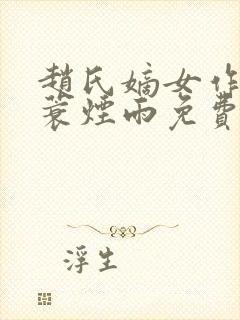 趙氏嫡女作
蓑煙雨免費
浮生